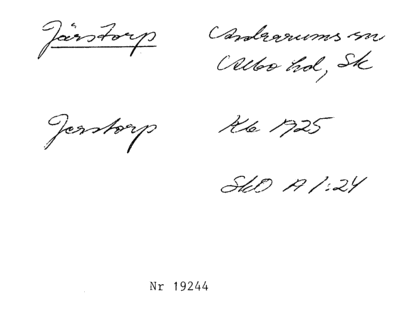 Järstorp Andrarums sn
Albo hd, Sk
Jerstorp Kb 1925
SkO A 1:24
Nr 19244